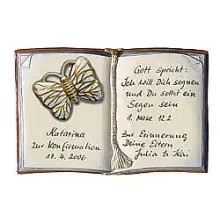 Katarina
zur Konfirmation
17. 4. 2006
Gott spricht:
Ich will Dich segnen
und Du sollst ein
Segen sein
1. Mose 12.2
Zur Erinnerung,
Deine Eltern
Julia & Kai